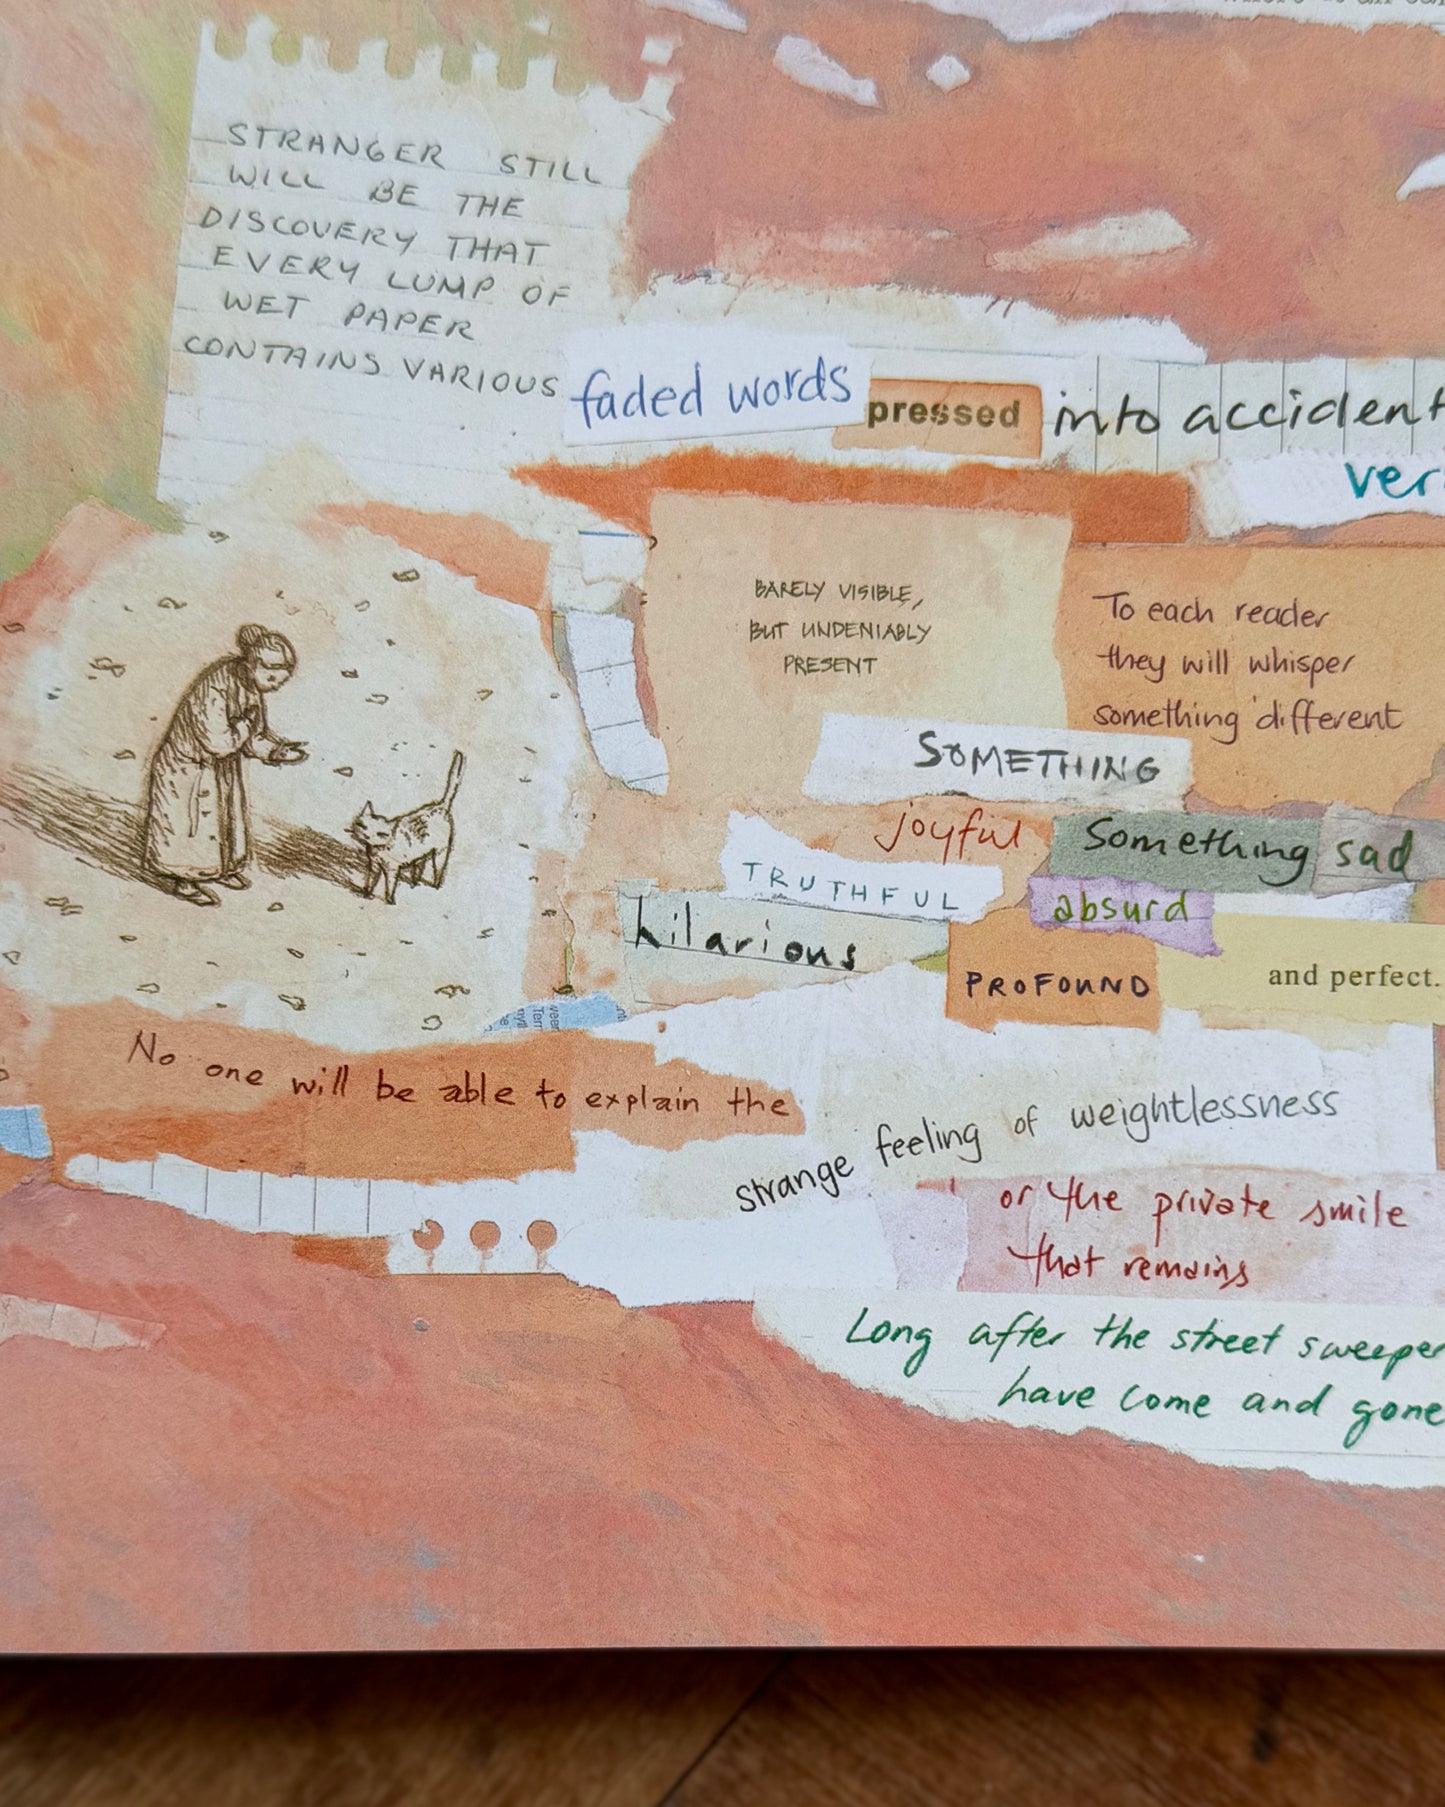 STRANGER STILL
WILL BE THE
DISCOVERY THAT
EVERY LUMP OF
WET PAPER
CONTAINS VARIOUS
faded words pressed into accident
BARELY VISIBLE,
BUT UNDENIABLY
PRESENT
To each reader
they will whisper
something different
SOMETHING
joyful Something sad
TRUTHFUL absurd
hilarious PROFOUND and perfect.
No one will be able to explain the
strange feeling of weightlessness
or the private smile
that remains
Long after the street sweeper
have come and gone